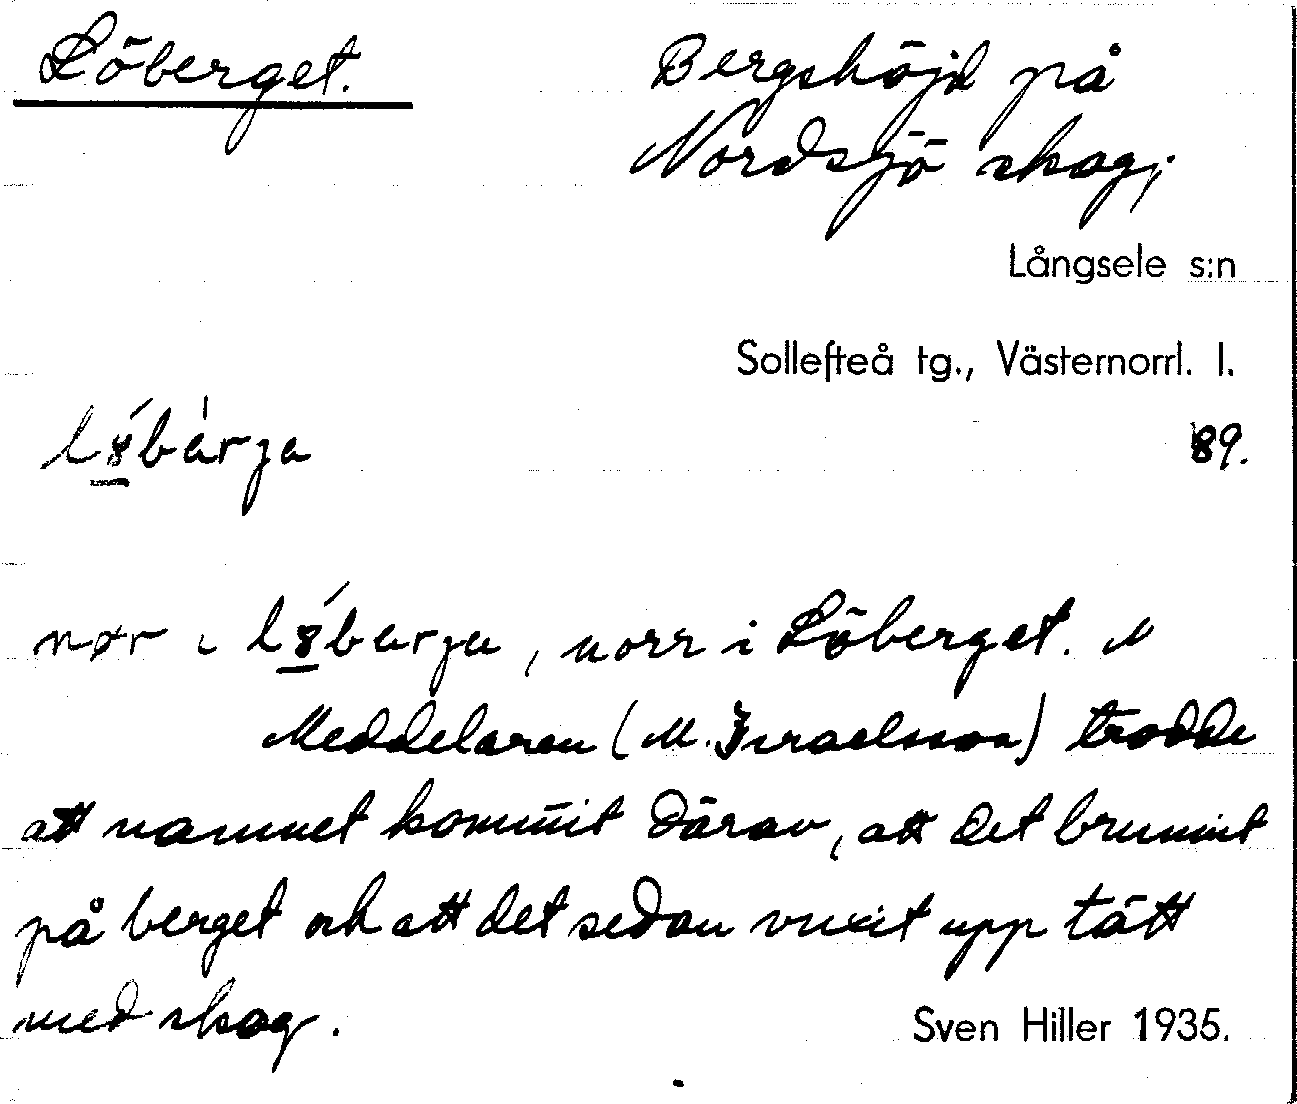 Löberget.
Bergshöjd på
Nordsjö skog;
Långsele s:n
Sollefteå tg., Västernorrl. l.
89.
nør i , norr i Löberget.
Meddelaren (M. Israelsson) trodde
att namnet kommit därav, att det brunnit
på berget och att det sedan vuxit upp tätt
med skog.
Sven Hiller 1935.